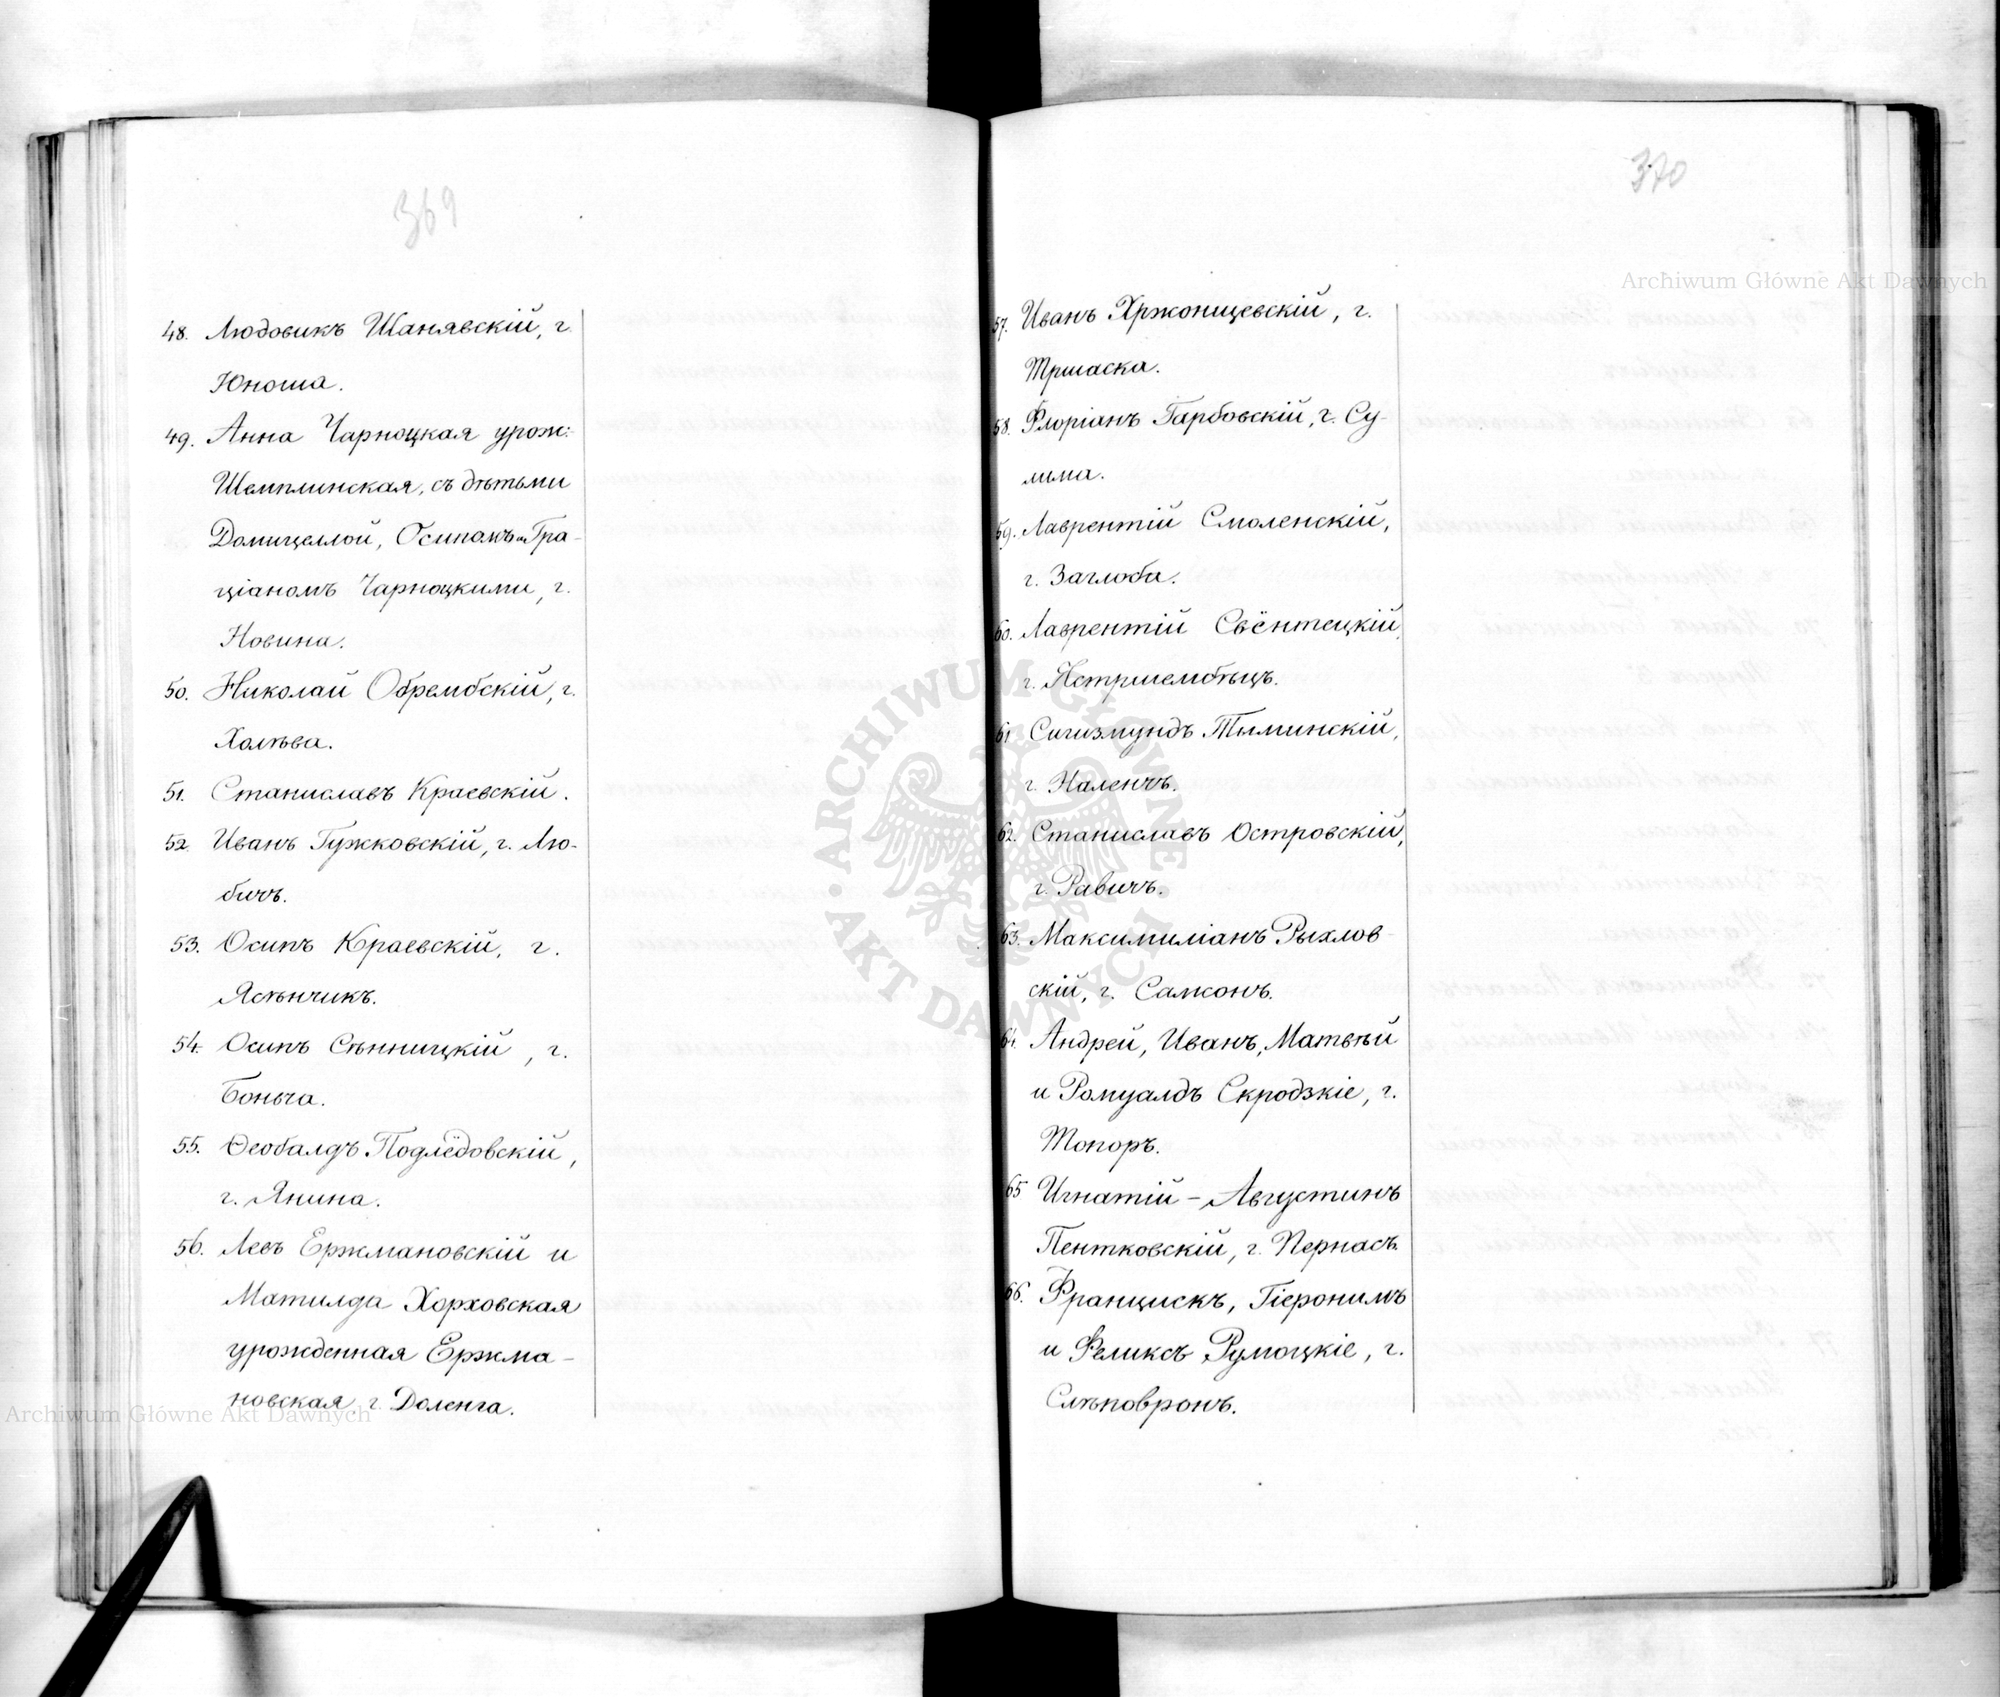 369
48. Людовикъ Шанявскій, г.
Юноша.
49. Анна Чарноцкая урож:
Шемплинская, съ дѣтьми
Домицеллой, Осипомъ-Гра-
ціаномъ Чарноцкими, г.
Новина.
50. Николай Обрембскій, г.
Холѣва.
51. Станиславъ Краевскій.
52. Иванъ Гужковскій, г. Лю-
бичъ.
53. Осипъ Краевскій, г.
Ясѣнчикъ.
54. Осипъ Сѣнницкій, г.
Боньча.
55. Ѳеобалдъ Подлёдовскій,
г. Янина.
56. Левъ Ержмановскій и
Матилда Хорховская
урожденная Ержма-
новская г. Доленга.
370
57. Иванъ Хржонщевскій, г.
Тршаска.
58. Флоріанъ Гарбовскій, г. Су-
лима.
59. Лаврентій Смоленскій,
г. Заглоба.
60. Лаврентій Свёнтецкій,
г. Ястршембѣцъ.
61 Сигизмундъ Тыминскій,
г. Наленчъ.
62. Станиславъ Островскій,
г. Равичъ.
63. Максимиліанъ Рыхлов-
скій, г. Самсонъ.
64. Андрей, Иванъ, Матвѣй
и Ромуалдъ Скродзкіе, г.
Топоръ.
65 Игнатій-Августинъ
Пентковскій, г. Пернасъ.
66. Францискъ, Гіеронимъ
и Феликсъ Румоцкіе, г.
Слѣповронъ.
Archiwum Główne Akt Dawnych
Archiwum Główne Akt Dawnych
ARCHIWUM GŁÓWNE AKT DAWNYCH